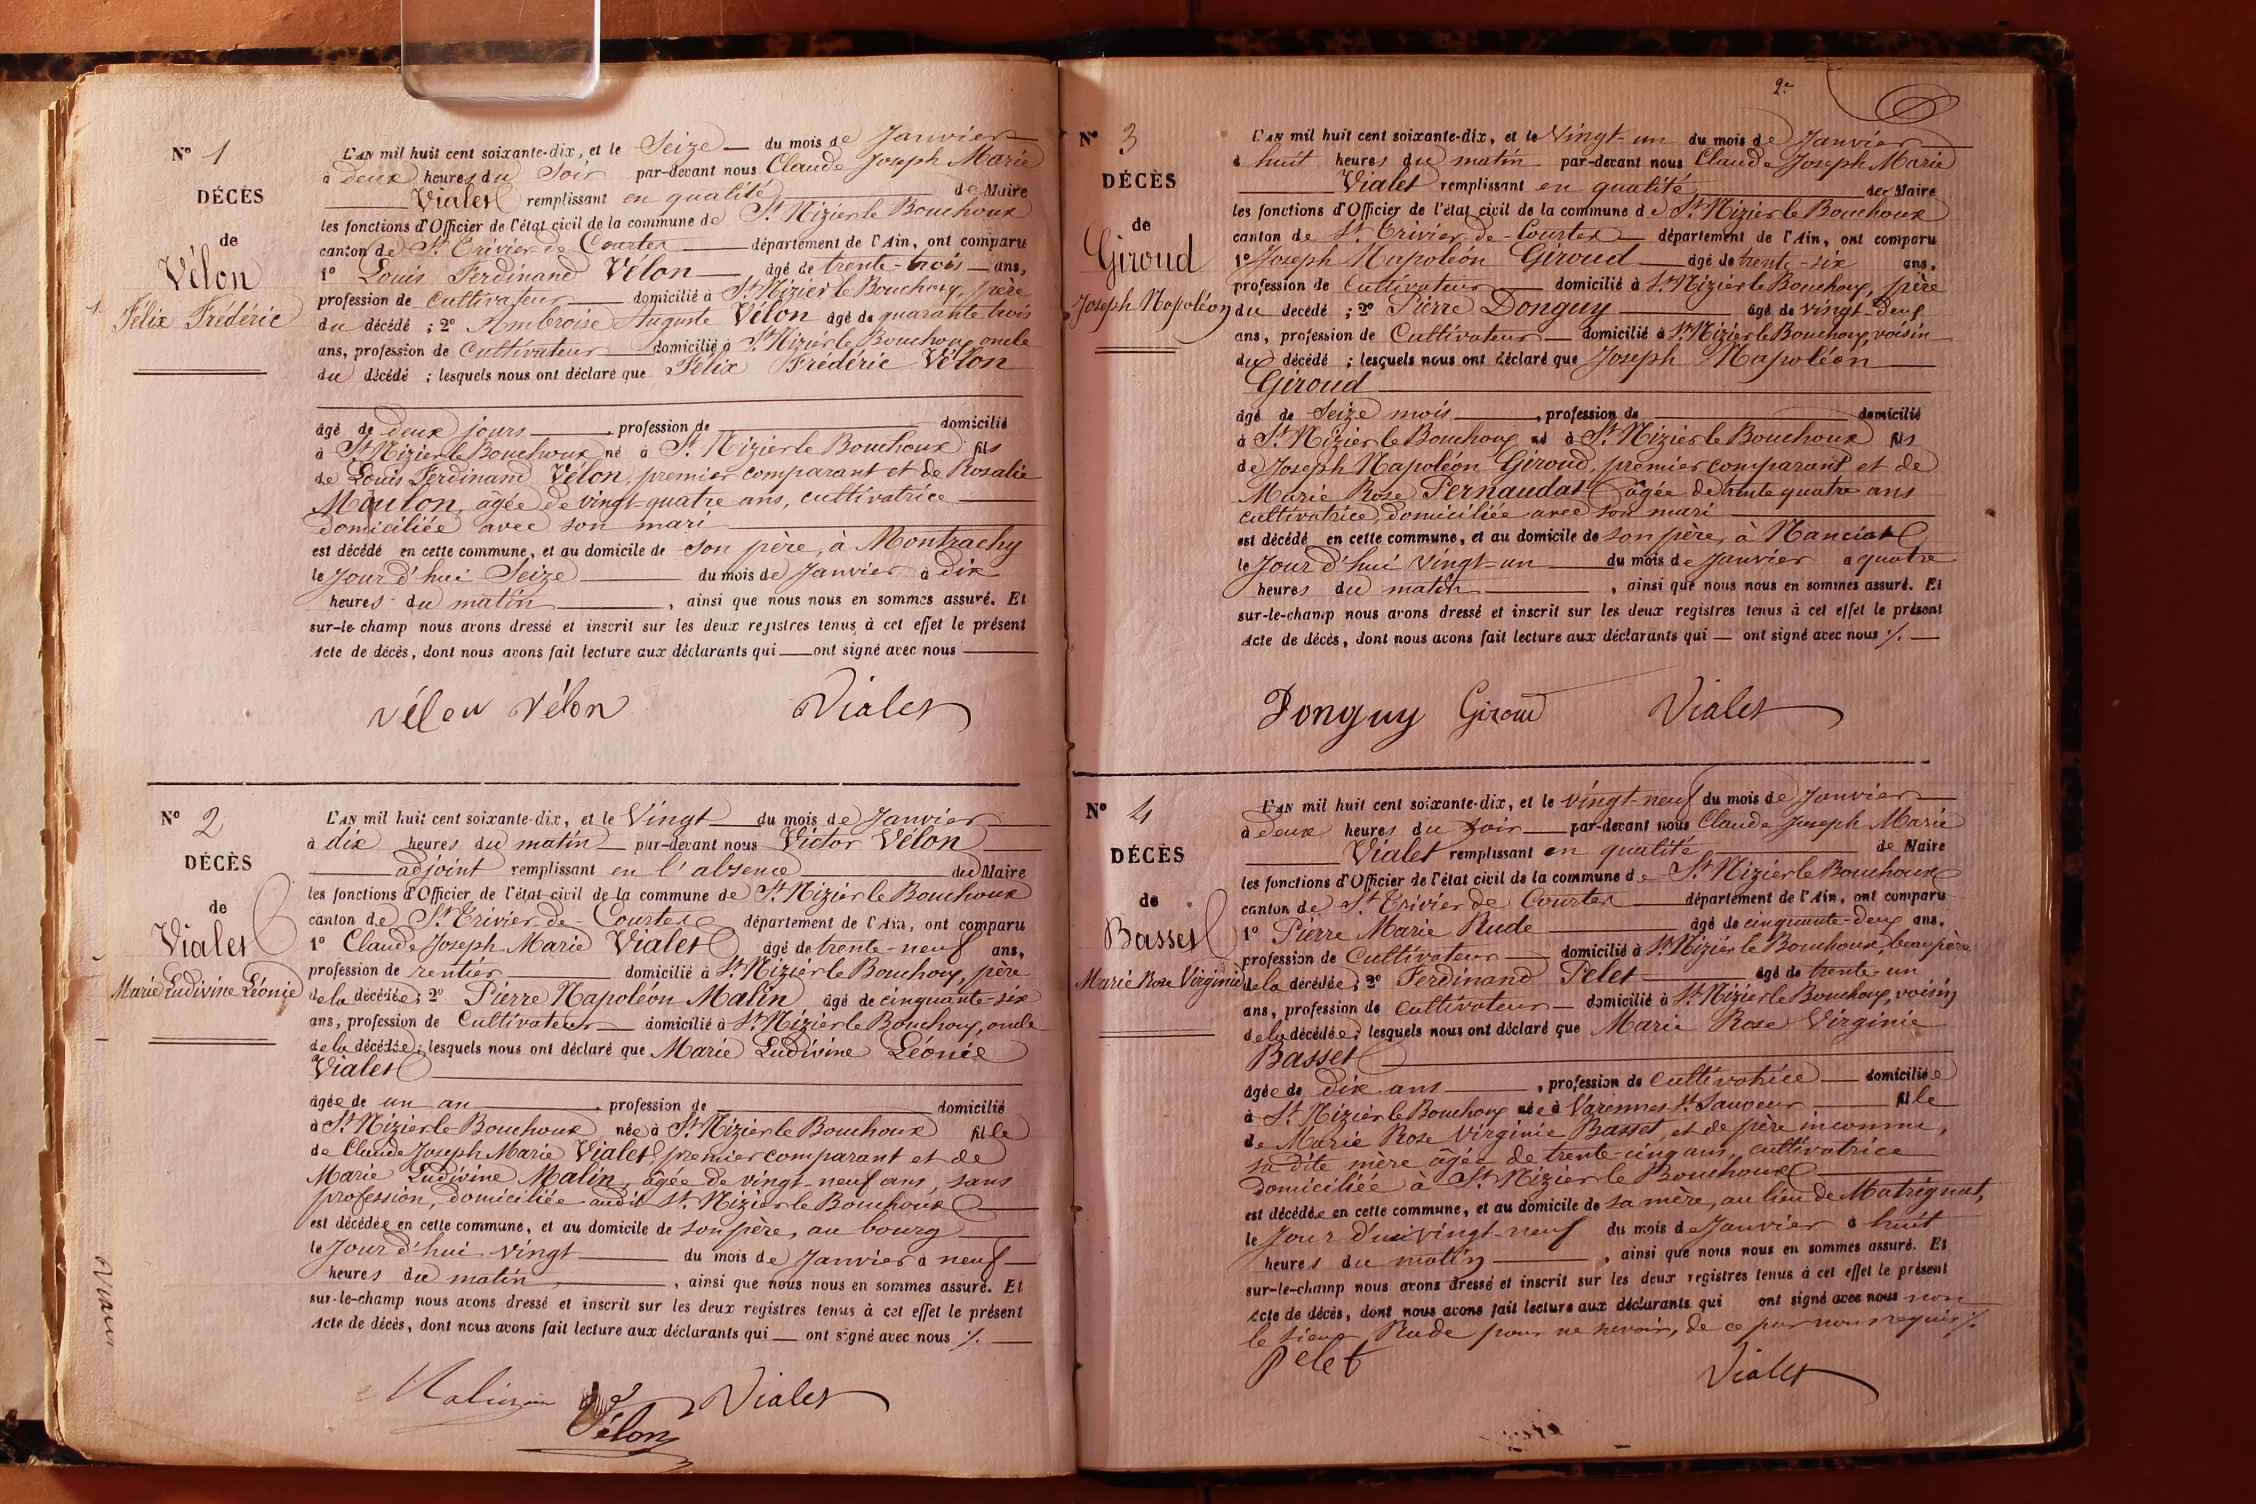 N° 1
DÉCÈS
de
Vélon
Félix Frédéric
L'AN mil huit cent soixante-dix, et le Seize du mois de Janvier
à deux heures du Soir par-devant nous Claude Joseph Marie
Vialet remplissant en qualité de Maire
les fonctions d'Officier de l'état civil de la commune de St. Nizier le Bouchoux
canton de St. Trivier-de-Courtes département de l'Ain, ont comparu
1° Louis Ferdinand Vélon âgé de trente-trois ans,
profession de cultivateur domicilié à St. Nizier le Bouchoux, père
du décédé ; 2° Ambroise Auguste Vélon âgé de quarante trois
ans, profession de Cultivateur domicilié à St. Nizier le Bouchoux, oncle
du décédé ; lesquels nous ont déclaré que Félix Frédéric Vélon
âgé de deux jours, profession de domicilié
à St. Nizier le Bouchoux né à St. Nizier le Bouchoux fils
de Louis Ferdinand Vélon, premier comparant et de Rosalie
Moulon, âgée de vingt-quatre ans, cultivatrice
domiciliée avec son mari
est décédé en cette commune, et au domicile de son père, à Montrachy
le Jour d'hui Seize du mois de Janvier à dix
heures du matin, ainsi que nous nous en sommes assuré. Et
sur-le-champ nous avons dressé et inscrit sur les deux registres tenus à cet effet le présent
Acte de décès, dont nous avons fait lecture aux déclarants qui — ont signé avec nous
Vélon Vélon Vialet
N° 2
DÉCÈS
de
Vialet
Marie Ludivine Léonie
L'AN mil huit cent soixante-dix, et le Vingt du mois de Janvier
à dix heures du matin par-devant nous Victor Vélon
adjoint remplissant en l'absence du Maire
les fonctions d'Officier de l'état civil de la commune de St. Nizier le Bouchoux
canton de St. Trivier-de-Courtes département de l'Ain, ont comparu
1° Claude Joseph Marie Vialet âgé de trente-neuf ans,
profession de rentier domicilié à St. Nizier le Bouchoux, père
de la décédée ; 2° Pierre Napoléon Malin âgé de cinquante-six
ans, profession de Cultivateur domicilié à St. Nizier le Bouchoux, oncle
de la décédée ; lesquels nous ont déclaré que Marie Ludivine Léonie
Vialet
âgée de un an, profession de domicilié
à St. Nizier le Bouchoux née à St. Nizier le Bouchoux fille
de Claude Joseph Marie Vialet, premier comparant et de
Marie Ludivine Malin, âgée de vingt-neuf ans, sans
profession, domiciliée audit St. Nizier le Bouchoux
est décédée en cette commune, et au domicile de son père, au bourg
le Jour d'hui vingt du mois de Janvier à neuf
heures du matin, ainsi que nous nous en sommes assuré. Et
sur-le-champ nous avons dressé et inscrit sur les deux registres tenus à cet effet le présent
Acte de décès, dont nous avons fait lecture aux déclarants qui — ont signé avec nous ./.
Malin Vialet
Vélon
2e
N° 3
DÉCÈS
de
Giroud
Joseph Napoléon
L'AN mil huit cent soixante-dix, et le Vingt-un du mois de Janvier
à huit heures du matin par-devant nous Claude Joseph Marie
Vialet remplissant en qualité de Maire
les fonctions d'Officier de l'état civil de la commune de St. Nizier le Bouchoux
canton de St. Trivier-de-Courtes département de l'Ain, ont comparu
1° Joseph Napoléon Giroud âgé de trente-six ans,
profession de Cultivateur domicilié à St. Nizier le Bouchoux, père
du décédé ; 2° Pierre Donguy âgé de vingt-deux
ans, profession de Cultivateur domicilié à St. Nizier le Bouchoux, voisin
du décédé ; lesquels nous ont déclaré que Joseph Napoléon
Giroud
âgé de Seize mois, profession de domicilié
à St. Nizier le Bouchoux né à St. Nizier le Bouchoux fils
de Joseph Napoléon Giroud, premier comparant et de
Marie Rose Pernaudat âgée de trente quatre ans
cultivatrice, domiciliée avec son mari
est décédé en cette commune, et au domicile de son père, à Nanciat
le Jour d'hui Vingt-un du mois de Janvier à quatre
heures du matin, ainsi que nous nous en sommes assuré. Et
sur-le-champ nous avons dressé et inscrit sur les deux registres tenus à cet effet le présent
Acte de décès, dont nous avons fait lecture aux déclarants qui — ont signé avec nous ./.
Donguy Giroud Vialet
N° 4
DÉCÈS
de
Basset
Marie Rose Virginie
L'AN mil huit cent soixante-dix, et le vingt-neuf du mois de Janvier
à deux heures du soir par-devant nous Claude Joseph Marie
Vialet remplissant en qualité de Maire
les fonctions d'Officier de l'état civil de la commune de St. Nizier le Bouchoux
canton de St. Trivier de Courtes département de l'Ain, ont comparu
1° Pierre Marie Rude âgé de cinquante-deux ans,
profession de Cultivateur domicilié à St. Nizier le Bouchoux, beau père
de la décédée ; 2° Ferdinand Pelet âgé de trente-un
ans, profession de cultivateur domicilié à St. Nizier le Bouchoux, voisin
de la décédée ; lesquels nous ont déclaré que Marie Rose Virginie
Basset
âgée de dix ans, profession de cultivatrice domiciliée
à St. Nizier le Bouchoux née à Varennes-St. Sauveur fille
de Marie Rose Virginie Basset, et de père inconnu,
sa dite mère âgée de trente-cinq ans, cultivatrice
domiciliée à St. Nizier le Bouchoux
est décédée en cette commune, et au domicile de sa mère, au lieu de Matrignat,
le Jour d'ui vingt-neuf du mois de Janvier à huit
heures du matin, ainsi que nous nous en sommes assuré. Et
sur-le-champ nous avons dressé et inscrit sur les deux registres tenus à cet effet le présent
Acte de décès, dont nous avons fait lecture aux déclarants qui ont signé avec nous non
le sieur Rude pour ne savoir, de ce par nous requis ./.
Pelet Vialet